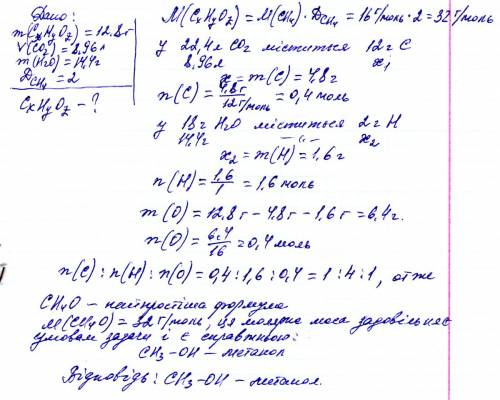 Дано:
m(CxHyOz) = 12,8г
V(CO2) = 8,96л
m(H2O) = 14,4г
DCH4 = 2
CxHyOz - ?
M(CxHyOz) = M(CH4) · DCH4 = 16 г/моль · 2 = 32 г/моль
у 22,4л CO2 міститься 12г C
8,96л x1
x1 = m(C) = 4,8г
n(C) = 4,8г / 12 г/моль = 0,4 моль
у 18г H2O міститься 2г H
14,4г —"— x2
x2 = m(H) = 1,6г
n(H) = 1,6 / 1 = 1,6 моль
m(O) = 12,8г - 4,8г - 1,6г = 6,4г.
n(O) = 6,4 / 16 = 0,4 моль
n(C) : n(H) : n(O) = 0,4 : 1,6 : 0,4 = 1 : 4 : 1, отже
CH4O - найпростіша формула
M(CH4O) = 32 г/моль, ця молярна маса задовільняє
умовам задачі і є справжньою:
CH3-OH - метанол
Відповідь: CH3-OH - метанол.